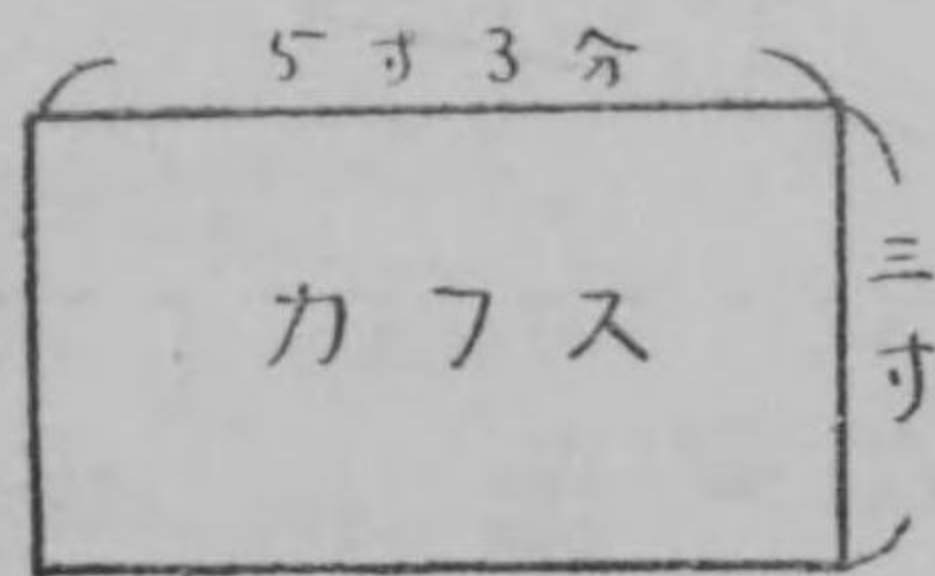 5寸3分
カフス
三寸